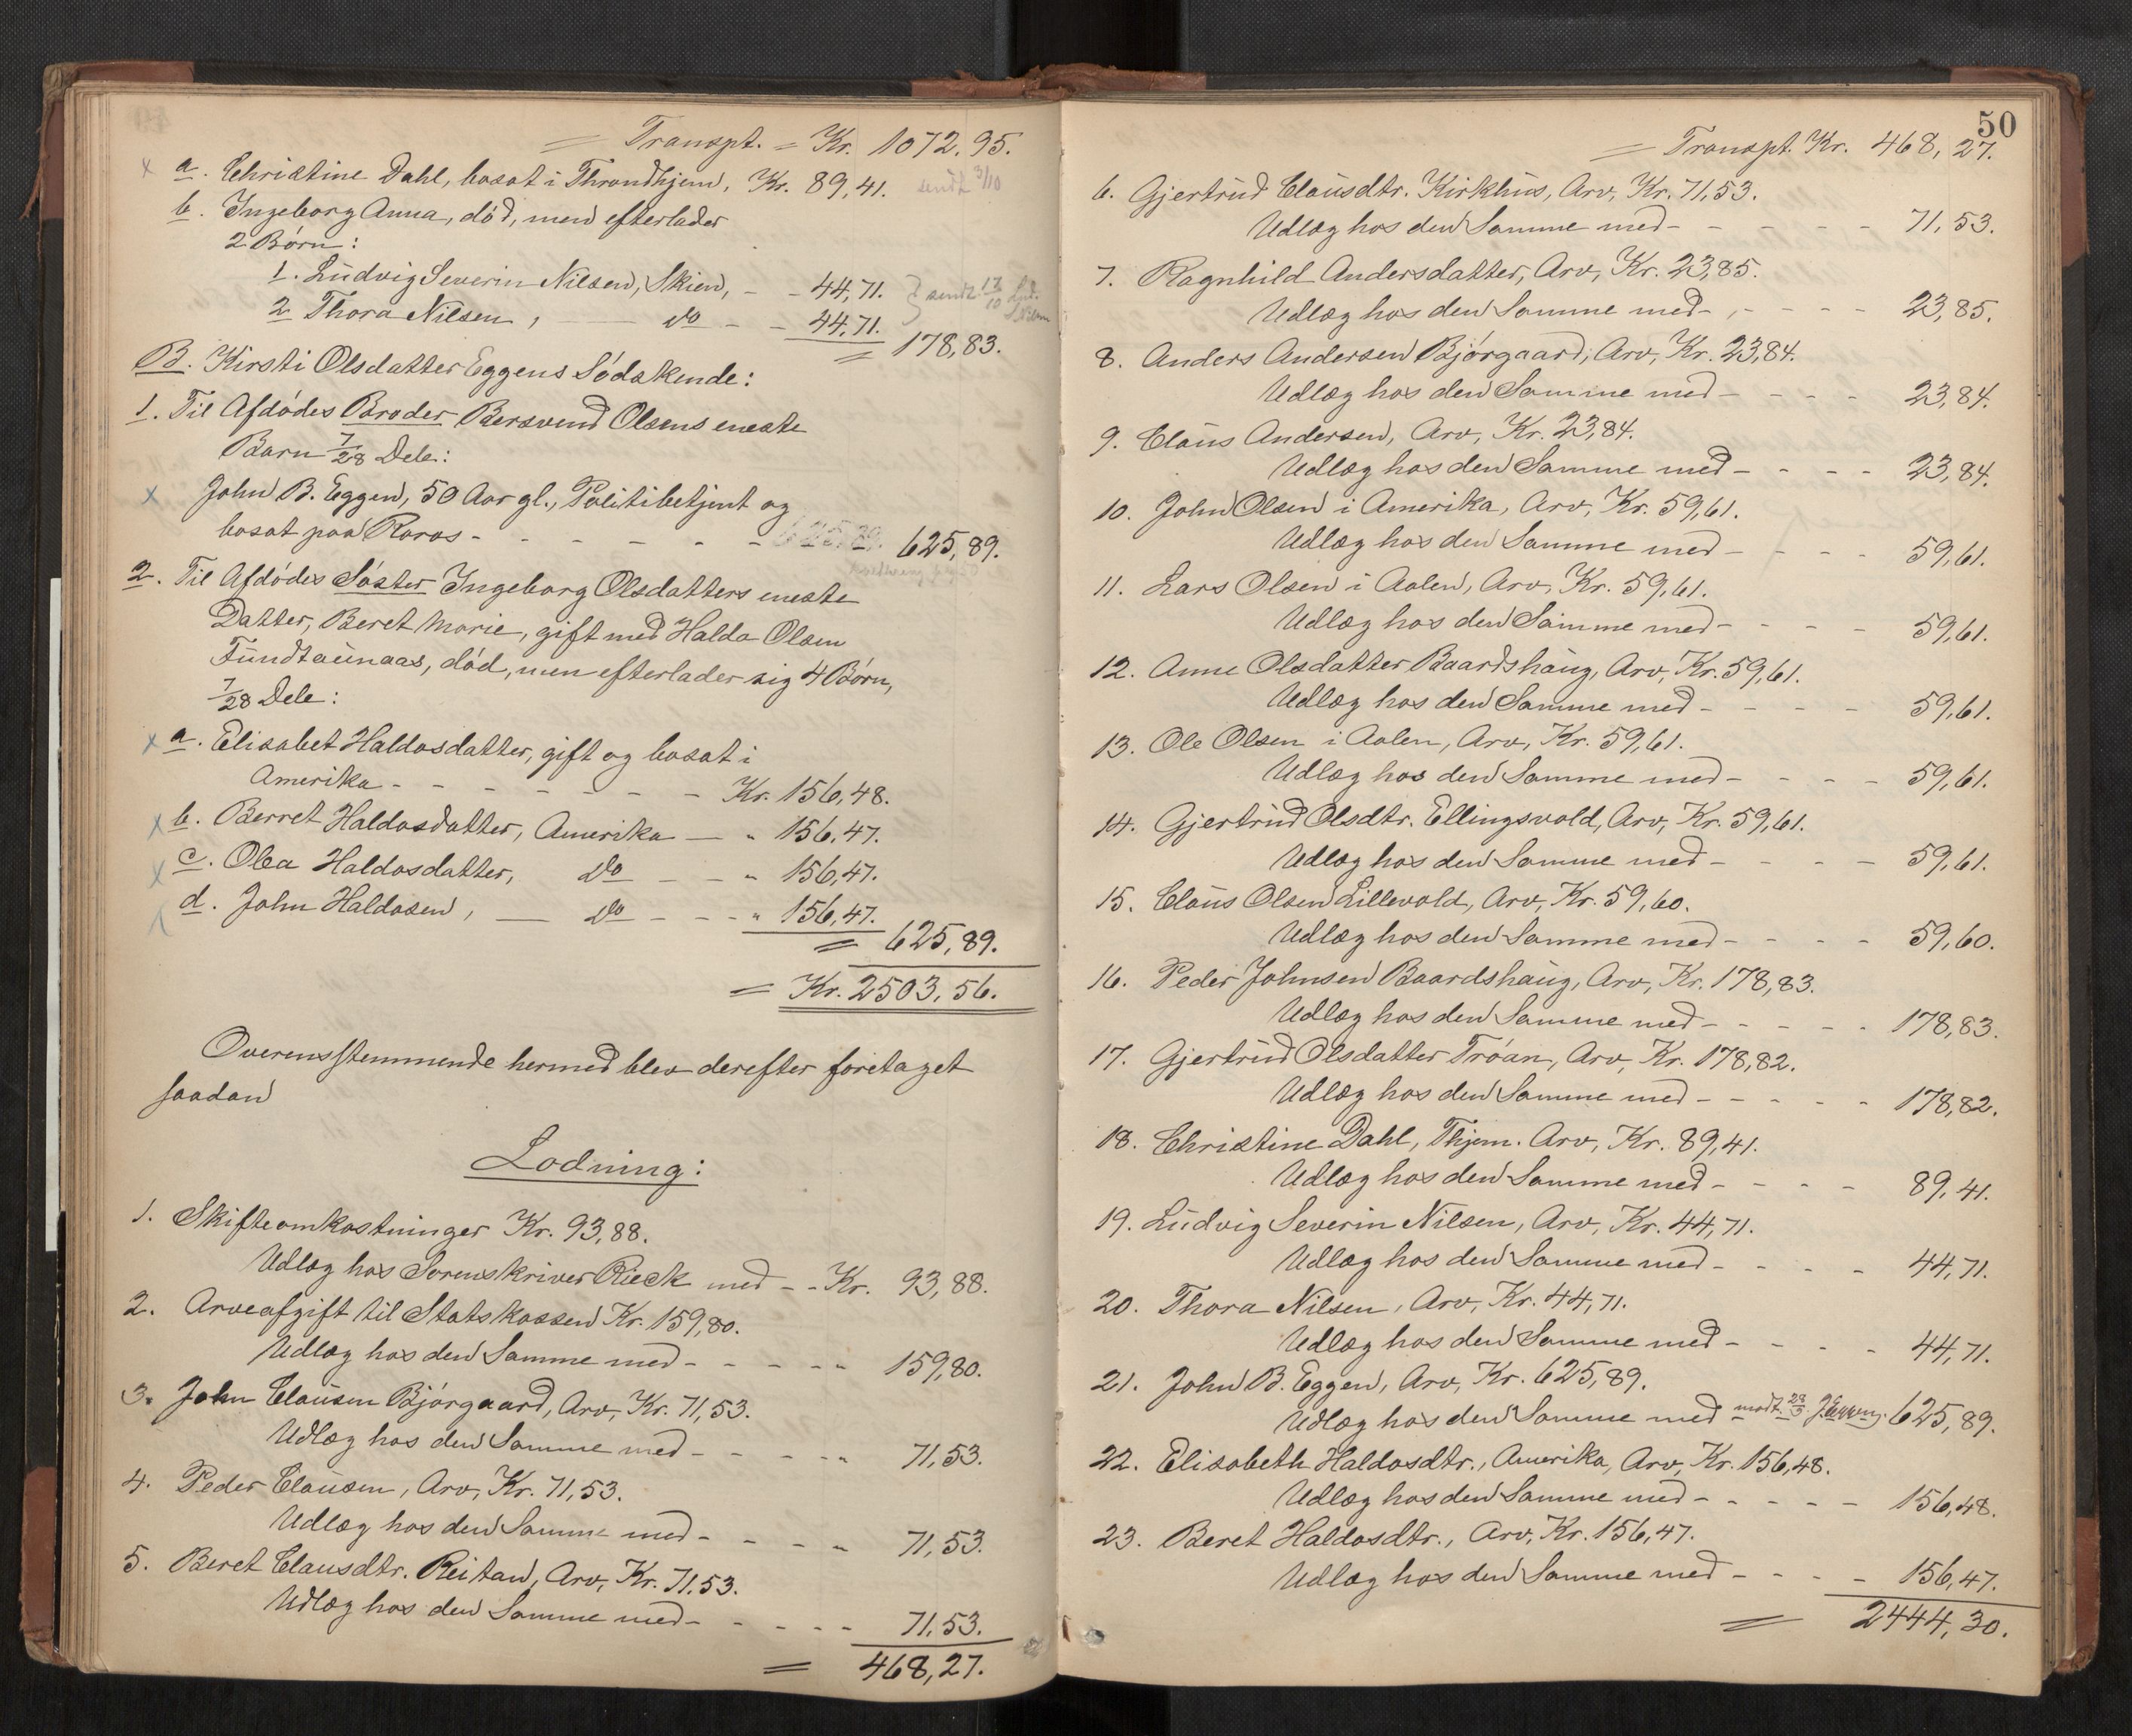 = Transpt. = Kr. 1072,95.
x a. Christine Dahl, bosat i Throndhjem, Kr. 89,41. sendt 3/10
b. Ingeborg Anna, död, men efterlader
2 Børn:
1. Ludvig Severin Nilsen, Skien, - - 44,71. } sendt 17/10
2. Thora Nilsen, — do - - 44,71.
= 178,83.
B. Kirsti Olsdatter Eggens Södskende:
1. Til Afdödes Broder Bersvend Olsens eneste
Barn 7/28 Dele:
x John B. Eggen, 50 Aar gl., Politibetjent og
bosat paa Røros - - - - - - 625,89. 625,89.
2. Til Afdödes Söster Ingeborg Olsdatters eneste
Datter, Beret Marie, gift med Halda Olsen
Fundtaunaas, död, men efterlader sig 4 Børn,
7/28 Dele:
x a. Elisabet Haldosdatter, gift og bosat i
Amerika - - - - - - - Kr. 156,48.
x b. Berret Haldosdatter, Amerika — " 156,47.
x c. Olea Haldosdatter, do - - - " 156,47.
d. John Haldosen, — do - - - " 156,47.
= 625,89.
= Kr. 2503,56.
Overensstemmende hermed blev derefter foretaget
saadan
Lodning:
1. Skifteomkostninger Kr. 93,88.
Udlæg hos Sorenskriver Rieck med - - Kr. 93,88.
2. Arveafgift til Statskassen Kr. 159,80.
Udlæg hos den Samme med - - - - - " 159,80.
3. John Clausen Björgaard, Arv, Kr. 71,53.
Udlæg hos den Samme med - - - - " 71,53.
4. Peder Clausen, Arv, Kr. 71,53.
Udlæg hos den Samme med - - - - " 71,53.
5. Beret Clausdtr. Reitan, Arv, Kr. 71,53.
Udlæg hos den Samme med - - - - - 71,53.
= 468,27.
50
= Transpt. Kr. 468,27.
6. Gjertrud Clausdtr. Kirkhus, Arv, Kr. 71,53.
Udlæg hos den Samme med - - - - - - 71,53.
7. Ragnhild Andersdatter, Arv, Kr. 23,85.
Udlæg hos den Samme med - - - - - 23,85.
8. Anders Andersen Björgaard, Arv, Kr. 23,84.
Udlæg hos den Samme med - - - - 23,84.
9. Claus Andersen, Arv, Kr. 23,84.
Udlæg hos den Samme med - - - - 23,84.
10. John Olsen i Amerika, Arv, Kr. 59,61.
Udlæg hos den Samme med - - - - 59,61.
11. Lars Olsen i Aalen, Arv, Kr. 59,61.
Udlæg hos den Samme med - - - - 59,61.
12. Anne Olsdatter Baardshaug, Arv, Kr. 59,61.
Udlæg hos den Samme med - - - - 59,61.
13. Ole Olsen i Aalen, Arv, Kr. 59,61.
Udlæg hos den Samme med - - - - 59,61.
14. Gjertrud Olsdtr. Ellingsvold, Arv, Kr. 59,61.
Udlæg hos den Samme med - - - - 59,61.
15. Claus Olsen Lillevold, Arv, Kr. 59,60.
Udlæg hos den Samme med - - - - 59,60.
16. Peder Johnsen Baardshaug, Arv, Kr. 178,83.
Udlæg hos den Samme med - - - - - 178,83.
17. Gjertrud Olsdatter Tröan, Arv, Kr. 178,82.
Udlæg hos den Samme med - - - - - 178,82.
18. Christine Dahl, Thjem. Arv, Kr. 89,41.
Udlæg hos den Samme med - - - - 89,41.
19. Ludvig Severin Nilsen, Arv, Kr. 44,71.
Udlæg hos den Samme med - - - - 44,71.
20. Thora Nilsen, Arv, Kr. 44,71.
Udlæg hos den Samme med - - - - 44,71.
21. John B. Eggen, Arv, Kr. 625,89.
Udlæg hos den Samme med modt. 28/3 J. Eggen. 625,89.
22. Elisabeth Haldosdtr., Amerika, Arv, Kr. 156,48.
Udlæg hos den Samme med - - - - - 156,48.
23. Beret Haldosdtr., Arv, Kr. 156,47.
Udlæg hos den Samme med - - - - 156,47.
= 2444,30.